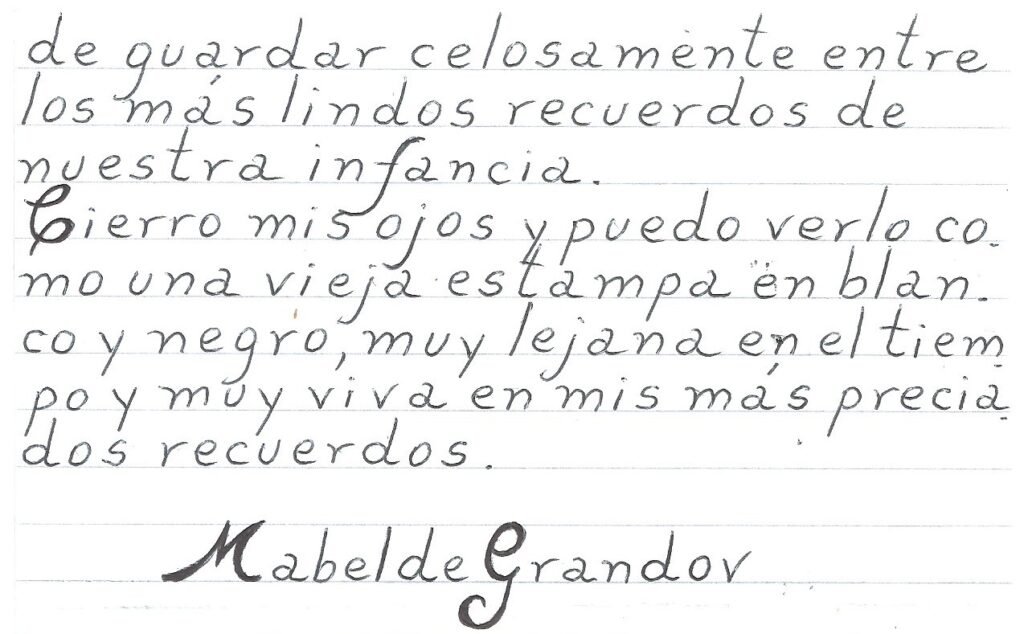 de guardar celosamente entre
los más lindos recuerdos de
nuestra infancia.
Cierro mis ojos y puedo verlo co-
mo una vieja estampa en blan-
co y negro, muy lejana en el tiem
po y muy viva en mis más precia
dos recuerdos.
Mabel de Grandov